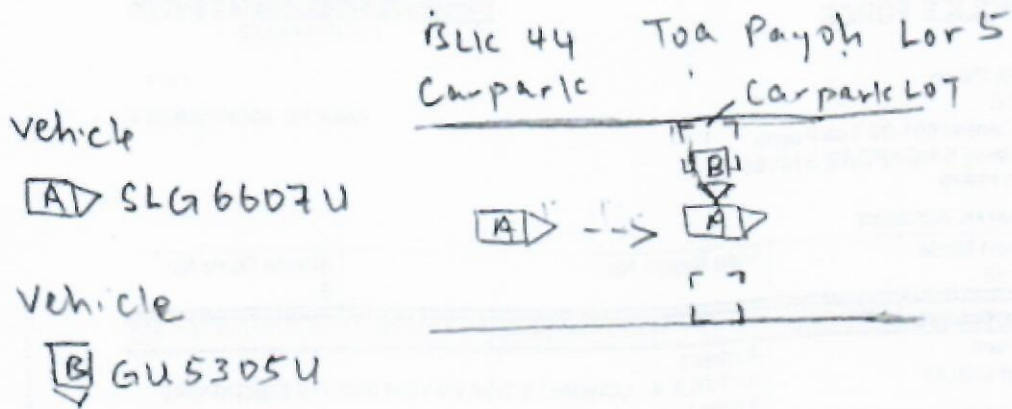 BLK 44 Toa Payoh Lor 5
Carpark
Carpark LOT
Vehicle
A SLG 6607U
B
A
A
Vehicle
B GU 5305U